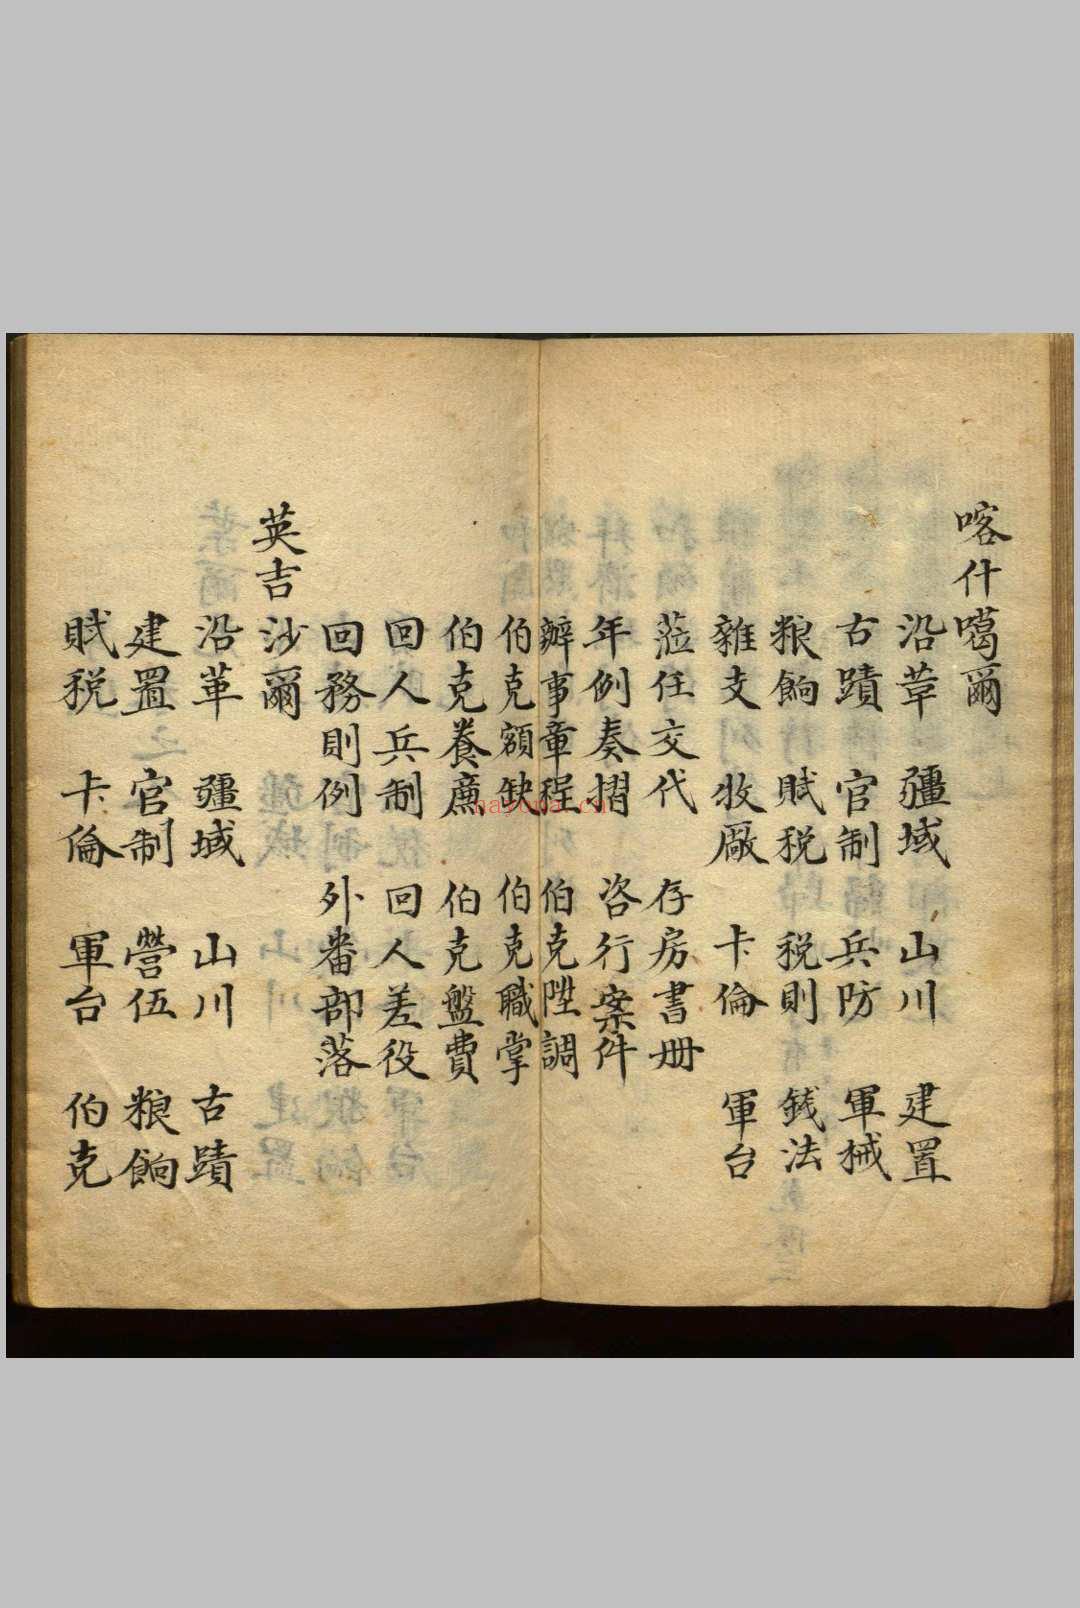 喀什噶爾
沿革 疆域 山川 建置
古蹟 官制 兵防 軍械
粮餉 賦税 税則 錢法
雜支 牧厰 卡倫 軍台
蒞任交代 存房書册
年例奏摺 咨行案件
辦事章程 伯克陞調
伯克額缺 伯克職掌
伯克養廉 伯克盤費
回人兵制 回人差役
回務則例 外番部落
英吉沙爾
沿革 疆域 山川 古蹟
建置 官制 營伍 粮餉
賦税 卡倫 軍台 伯克
nayona.cn